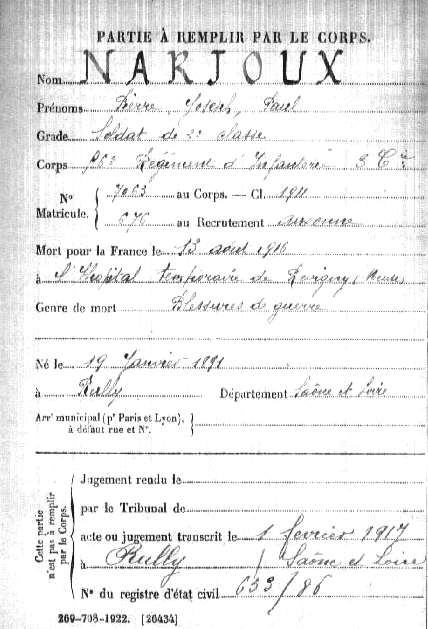 PARTIE À REMPLIR PAR LE CORPS.
Nom NARJOUX
Prénoms Pierre Joseph Paul
Grade Soldat de 2e classe
Corps 56e Régiment d'Infanterie 3 Cie
N° Matricule. { 7063 au Corps. — Cl. 1911
676 au Recrutement Auxonne
Mort pour la France le 13 aout 1916
à l'Hopital temporaire de Revigny (Meuse)
Genre de mort Blessures de guerre
Né le 19 Janvier 1891
à Rully Département Saône et Loire
Arrt municipal (pr Paris et Lyon), à défaut rue et N°. }
Cette partie n'est pas à remplir par le Corps.
Jugement rendu le
par le Tribunal de
acte ou jugement transcrit le 1 fevrier 1917
à Rully / Saône et Loire
N° du registre d'état civil 633/86
269-708-1922. [26434]